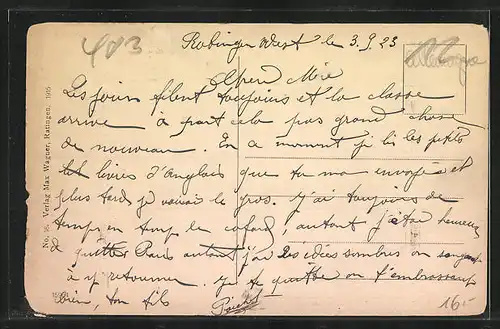 403
Ratingen West le 3.9.23
Allemagne
Chère Mère
Les jours filent toujours et la classe
arrive à part cela pas grand chose
de nouveau. En ce moment je lis les petits
livres d'Anglais que tu m'a envoyés et
plus tard je verrai le gros. J'ai toujours de
temps en temps le cafard, autant j'étais heureux
de quitter Paris autant j'ai des idées sombres en songeant
à y retourner. Je te quitte en t'embrassant
bien, ton fils
No. 16. Verlag Max Wagner, Ratingen. 1905
16-